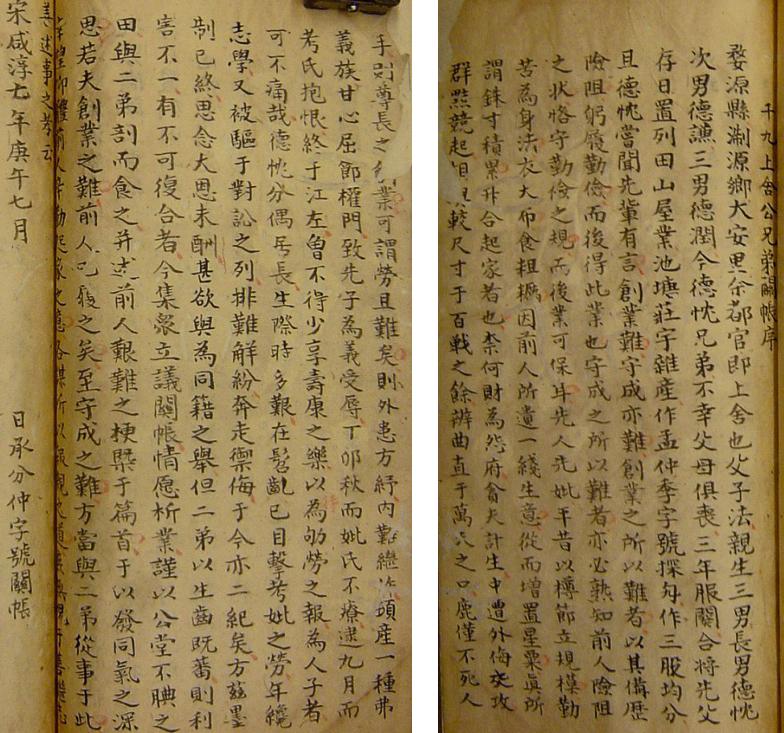 千九上舍公兄弟鬮帳序
婺源縣浙源鄉大安里余都官即上舍也父子法親生三男長男德忱
次男德讌三男德潤今德忱兄弟不幸父母俱喪三年服闋合將先父
存日置列田山屋業池塘莊宇雜產作孟仲季字號探勾作三股均分
且德忱嘗聞先輩有言創業難守成亦難創業之所以難者以其備歷
險阻躬履勤儉而後得此業也守成之所以難者亦必熟知前人險阻
之狀恪守勤儉之規而後業可保耳先人先妣平昔以樽節立規模勤
苦為身法衣大布食粗糲因前人所遺一綫生意從而增置星粟真所
謂銖寸積累升合起家者也柰何財為怨府禽夫計生中遭外侮交攻
群黠競起 較尺寸于百戰之餘辨曲直于萬 之口鹿僅不死人
手則尊長之 業可謂勞且難矣則外患方紓內難繼 頃產一種弗
義族甘心屈節權門致先子為義受辱丁卯秋而妣氏不療逮九月而
考氏抱恨終于江左曾不得少享壽康之樂以為劬勞之報為人子者
可不痛哉德忱分偶居長生際時多艱在髫齔已目擊考妣之勞年纔
志學又被驅于對訟之列排難解紛奔走禦侮于今亦二紀矣方茲墨
制已終思念大恩未酬甚欲與為同籍之舉但二弟以生齒既蕃則利
害不一有不可復合者今集衆立議鬮帳情愿析業謹以公堂不腆之
田與二弟剖而食之并述前人艱難之梗槩于篇首于以發同氣之深
思若夫創業之難前人已履之矣至守成之難方當與二弟從事于此
善述事之孝云
宋咸淳七年庚午七月 日承分仲字號鬮帳